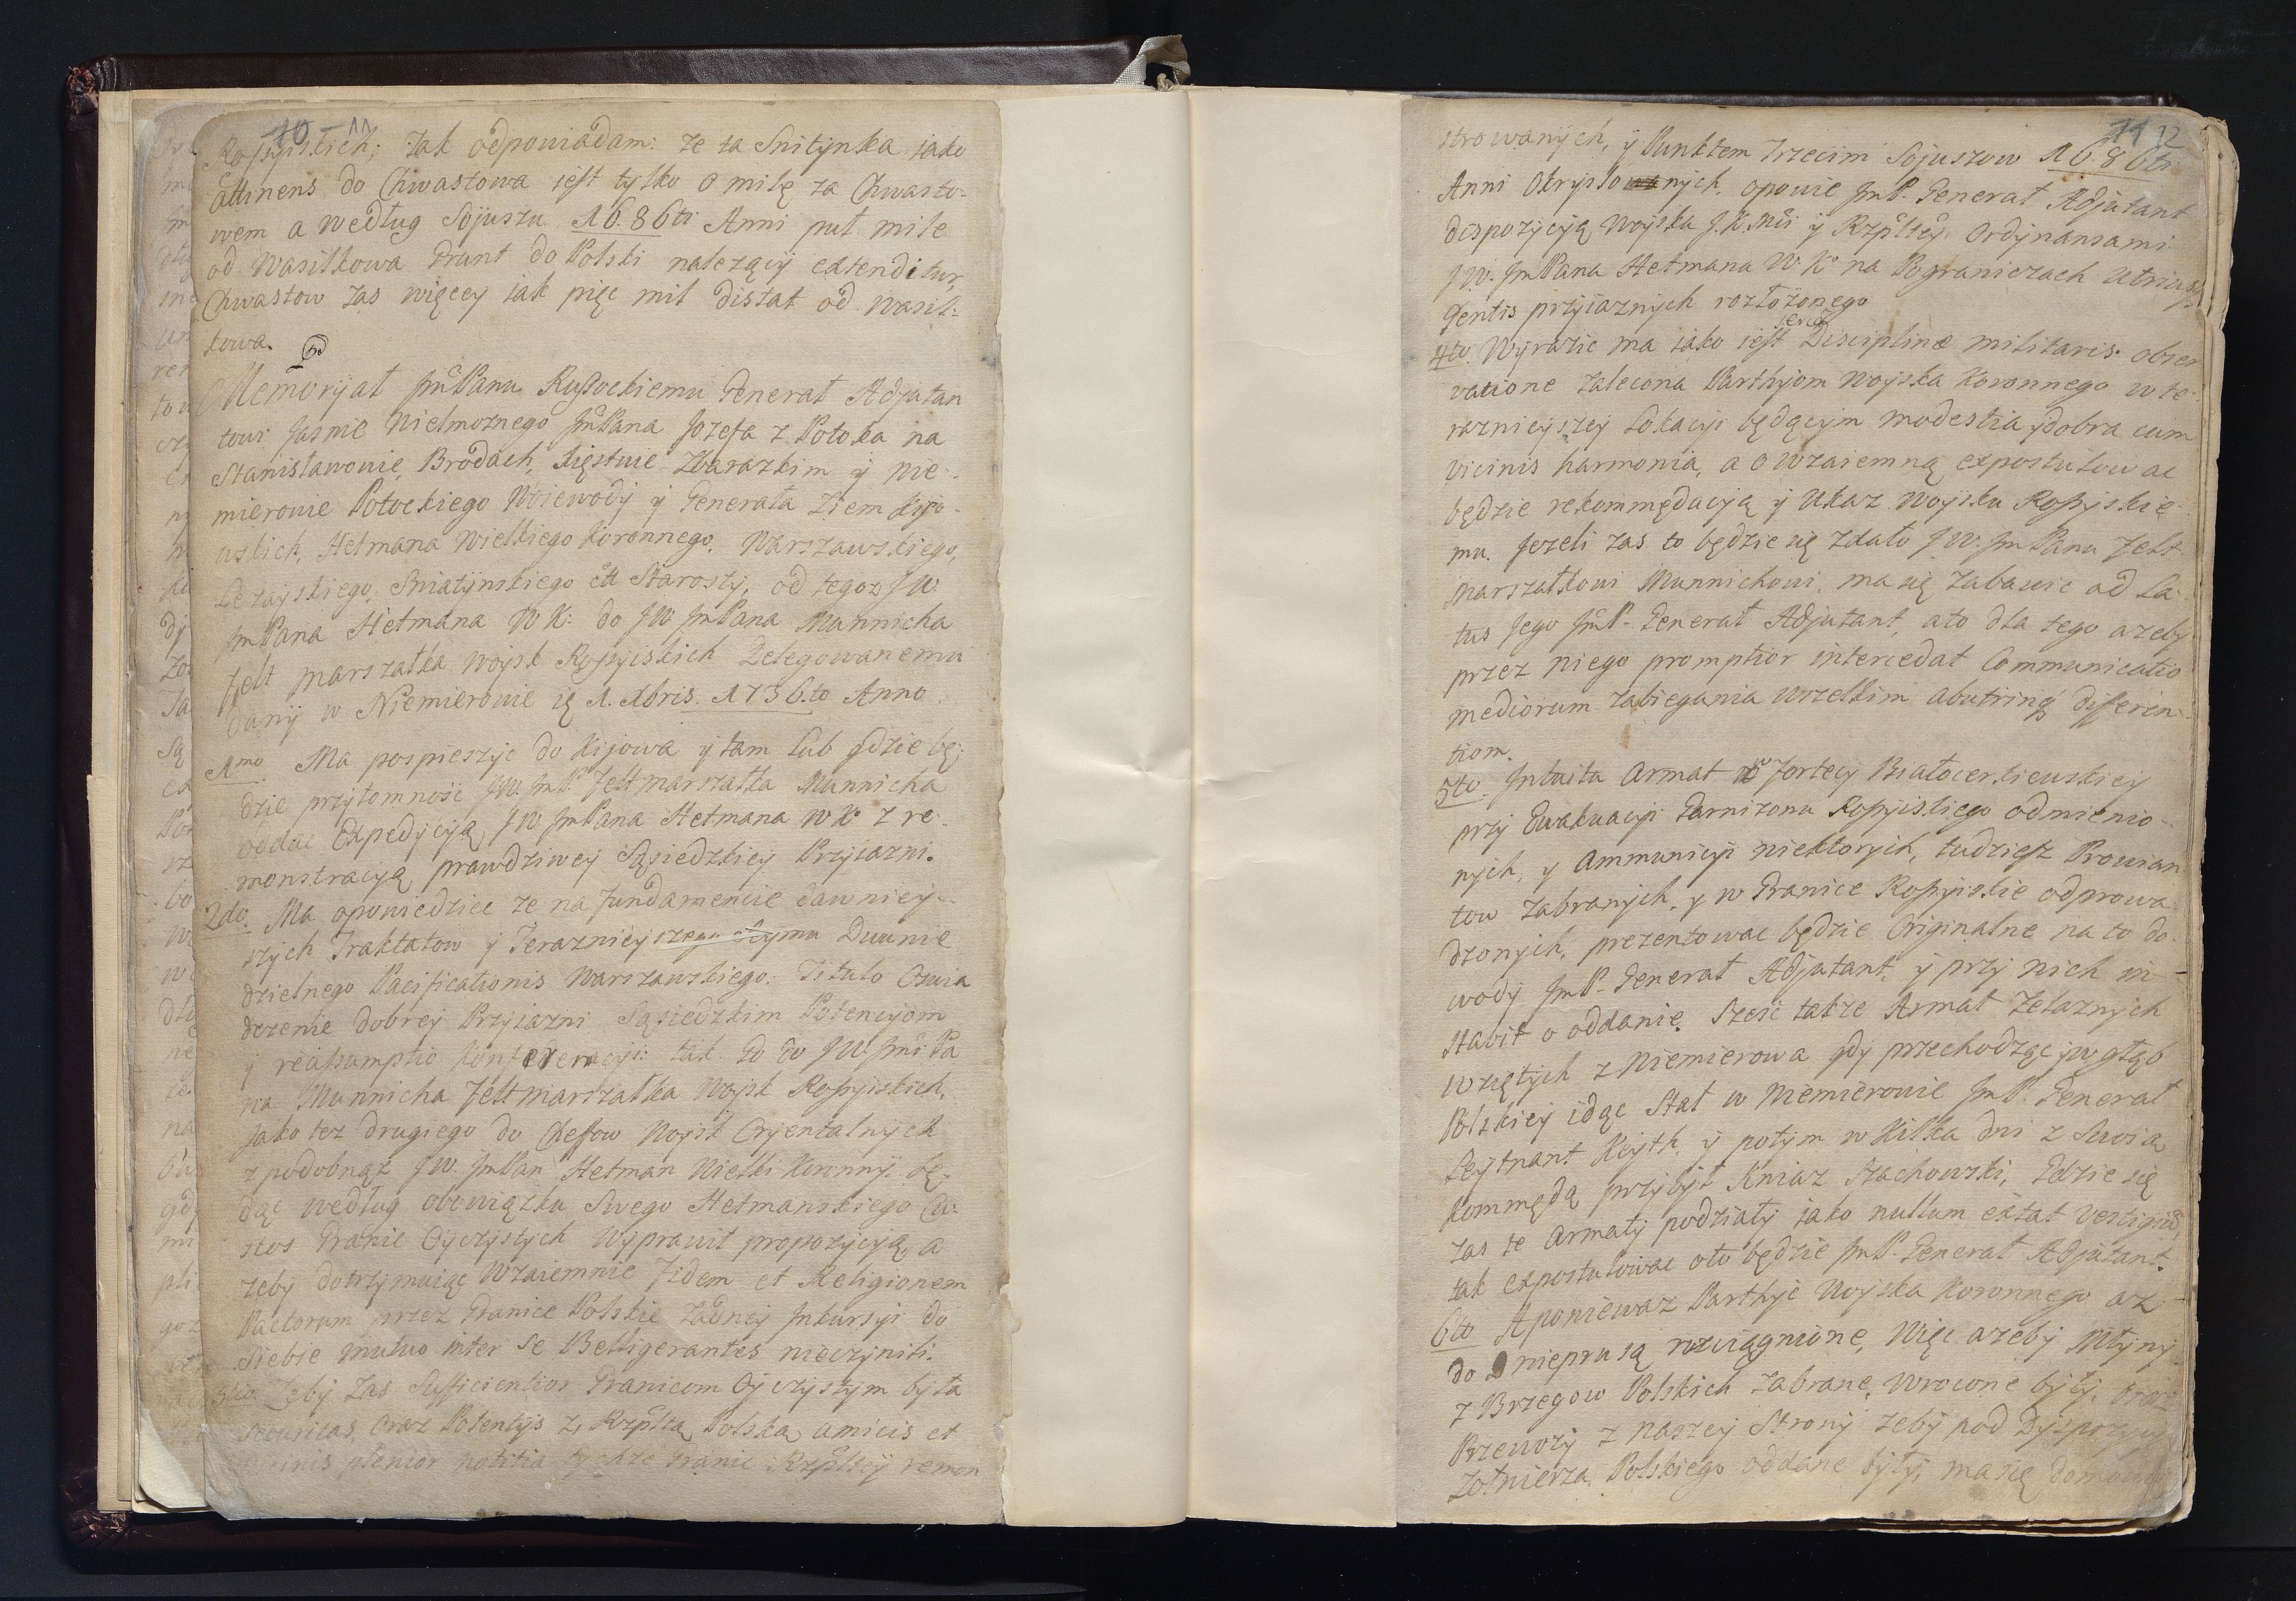 10 11
Rossyiskich; Tak odpowiadam: ze ta Snitynka jako
attinens do Chwastowa jest tylko o milę za Chwasto-
wem a według Sojuszu 1686ti Anni puł mile
od Wasilkowa Grunt do Polski nalezący extenditur,
Chwastow zas więcey jak pięc mil distat od Wasil:
kowa.
Memoryał JmPanu Russockiemu Generał Adjutan
towi Jasnie Wielmoznego JmPana Jozefa z Potoka na
Stanisławowie, Brodach, Xięstwie Zbarazkim y Nie-
mierowie Potockiego Woiewody y Generała Ziem Kijo-
wskich, Hetmana Wielkiego Koronnego, Warszawskiego,
Lezayskiego, Sniatynskiego ett Starosty, od tegoz JW.
JmPana Hetmana WK: do JW JmPana Munnicha
Felt marszałka Woysk Rossyiskich Delegowanemu
dany w Niemierowie 1. Xbris. 1736.to Anno
1mo. Ma pospieszyc do Kijowa y tam lub gdzie bę:
dzie przytomność JW. JmP. Feltmarszałka Munnicha
oddac Expedycyją JW JmPana Hetmana WK. z re-
monstracyją prawdziwey Sąsiedzkiey Przyiazni.
2do. Ma opowiedziec ze na fundamencie dawniey-
szych Traktatow y Terazniey Dwunie
dzielnego Pacificationis Warszawskiego: Titulo Oswia
dczenie dobrey Przyiazni Sąsiedzkim Potencyom
y reassumptio Konfederacyi: tak do JW. Jmci Pa
na Munnicha Feltmarszałka Woysk Rossyiskich,
Jako tez drugiego do Cheffow Woysk Oryentalnych
z podobnąz JW. JmPan Hetman Wielki Koronny, bę-
dąc według obowiązku Swego Hetmanskiego Cu-
stos Granic Oyczystych Wyprawił propozycyją, a
zeby dotrzymuiąc Wzaiemnie Fidem et Religionem
Pactorum przez Granice Polskie zadney Inkursyi do
Siebie mutuo inter Se Belligerantes nieczynili.
3tio. Zeby zas Sufficientior Granicom Oyczystym była
Securitas, oraz Potentys z Rzpltą Polską amicis et
vicinis plenior notitia tychze Granic Rzpltey remon
11 12
strowanych, y Punktem Trzecim Sojuszow 1686ti
Anni Okryslonych, opowie JmP. Generał Adjutant
dispozycyją Woyska J.K.Mci y Rzpltey Ordynansami
JW. JmPana Hetmana WK. na Pograniczach Utriusq
Gentis przyiaznych rozłozonego
4to. Wyrazic ma jako jest Disciplinæ militaris obser
vatione zalecona Parthyom Woyska Koronnego w te-
raznieyszey Lokacyi będącym modestia y dobra cum
vicinis harmonia, a o wzaiemną expostulowac
będzie rekommędacyją y Ukaz Woysku Rossyiskie-
mu. Jezeli zas to będzie się zdało JW. JmPanu Felt-
marszałkowi Munnichowi, ma się zabawic ad La-
tus Jego JmP. Generał Adjutant, a to dla tego azeby
przez niego promptior intercedat Communicatio
mediorum zabiegania wszelkim abutrinq differen-
tiom.
5to. Intuitu Armat w Fortecy Białocerkiewskiey
przy Ewakuacyi Garnizonu Rossyiskiego odmienio-
nych, y Ammunicyi niektorych, tudziesz Prowian
tow zabranych, y w Granice Rossyiskie odprowa-
dzonych, prezentowac będzie Originalne na to do-
wody JmP. Generał Adjutant, y przy nich in-
stabit o oddanie. Szesć takze Armat Zelaznych
Wziętych z Niemierowa gdy przechodząc w głąb
Polskiey idąc Stał w Niemierowie JmP. Generał
Leytnant Keyth, y potym w Kilka dni z Swoią
Kommędą przybył Kniaz Szachowski, Gdzie się
zas te Armaty podziały jako nullum extat Vestigiu,
tak expostulowac oto będzie JmP. Generał Adjutant.
6to Aponiewaz Parthye Woyska Koronnego az
do Dniepru są rozciągnione, Więc azeby Młyny
z Brzegow Polskich zabrane, wrocone były, oraz
Przewozy z naszey Strony zeby pod Dyspozycyją
Zołnierza Polskiego oddane były, ma się